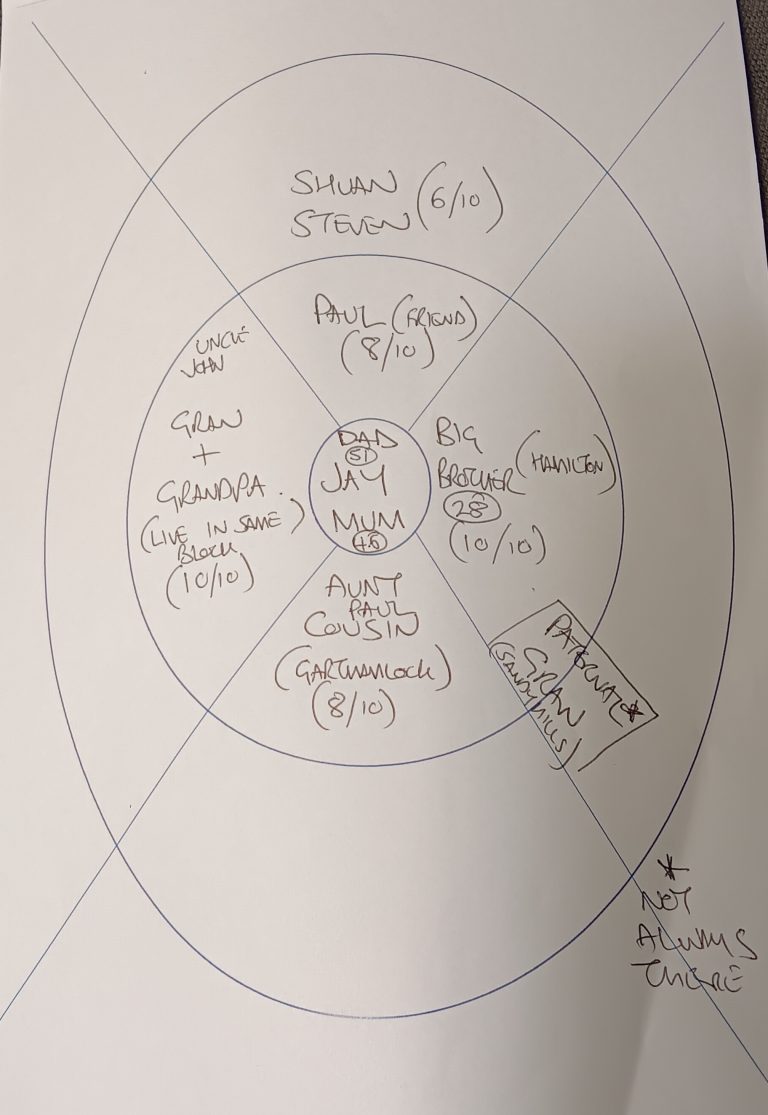 SHUAN
STEVEN (6/10)
PAUL (FRIEND)
(8/10)
UNCLE
JOHN
GRAN
+
GRANDPA
(LIVE IN SAME
BLOCK)
(10/10)
DAD
51
JAY
MUM
46
BIG
BROTHER (HAMILTON)
28
(10/10)
AUNT
PAUL
COUSIN
(GARTHAMLOCK)
(8/10)
PATERNAL *
GRAN
(SANDYHILLS)
*
NOT
ALWAYS
THERE